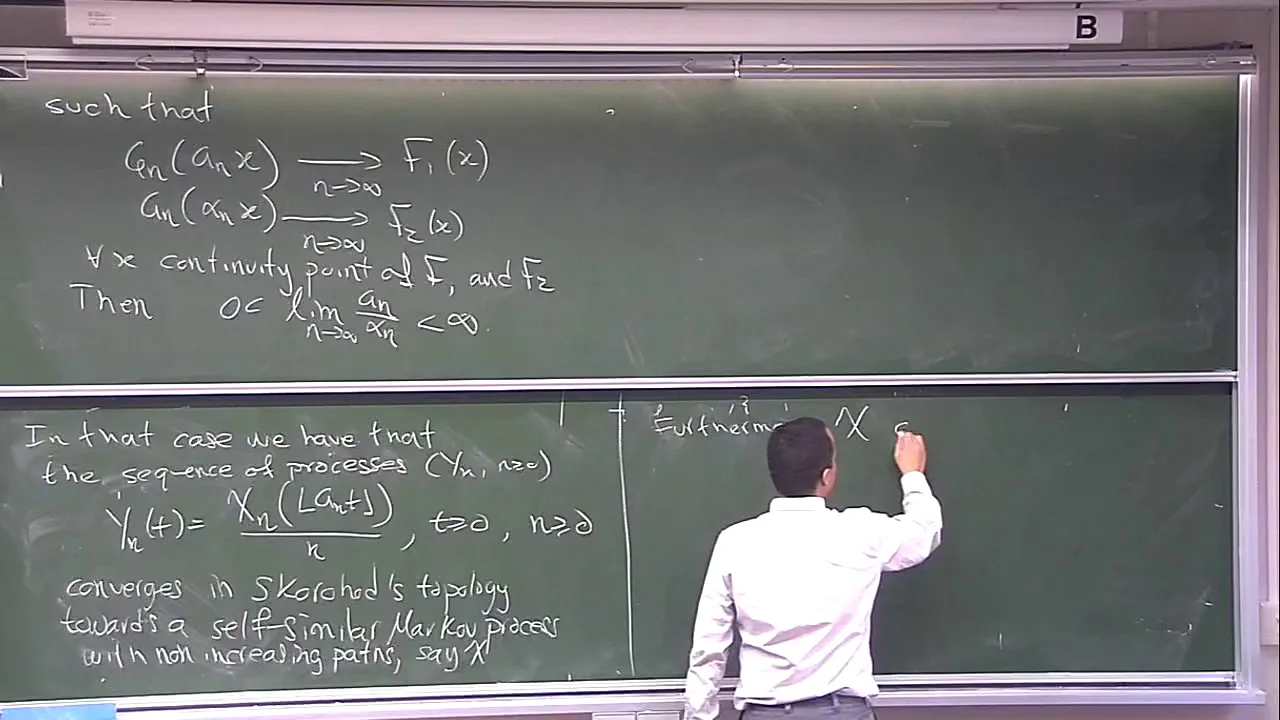 B
such that
Gn(anx) ⟶ F₁(x)
n→∞
Gn(αnx) ⟶ F₂(x)
n→∞
∀ x continuity point of F₁ and F₂
Then 0< lim an/αn < ∞.
n→∞
In that case we have that
the sequence of processes (Yn, n≥0)
Yn(t) = Xn(⌊ant⌋)/n , t≥0 , n≥0
converges in Skorohod's topology
towards a self-similar Markov process
with non increasing paths, say X
X